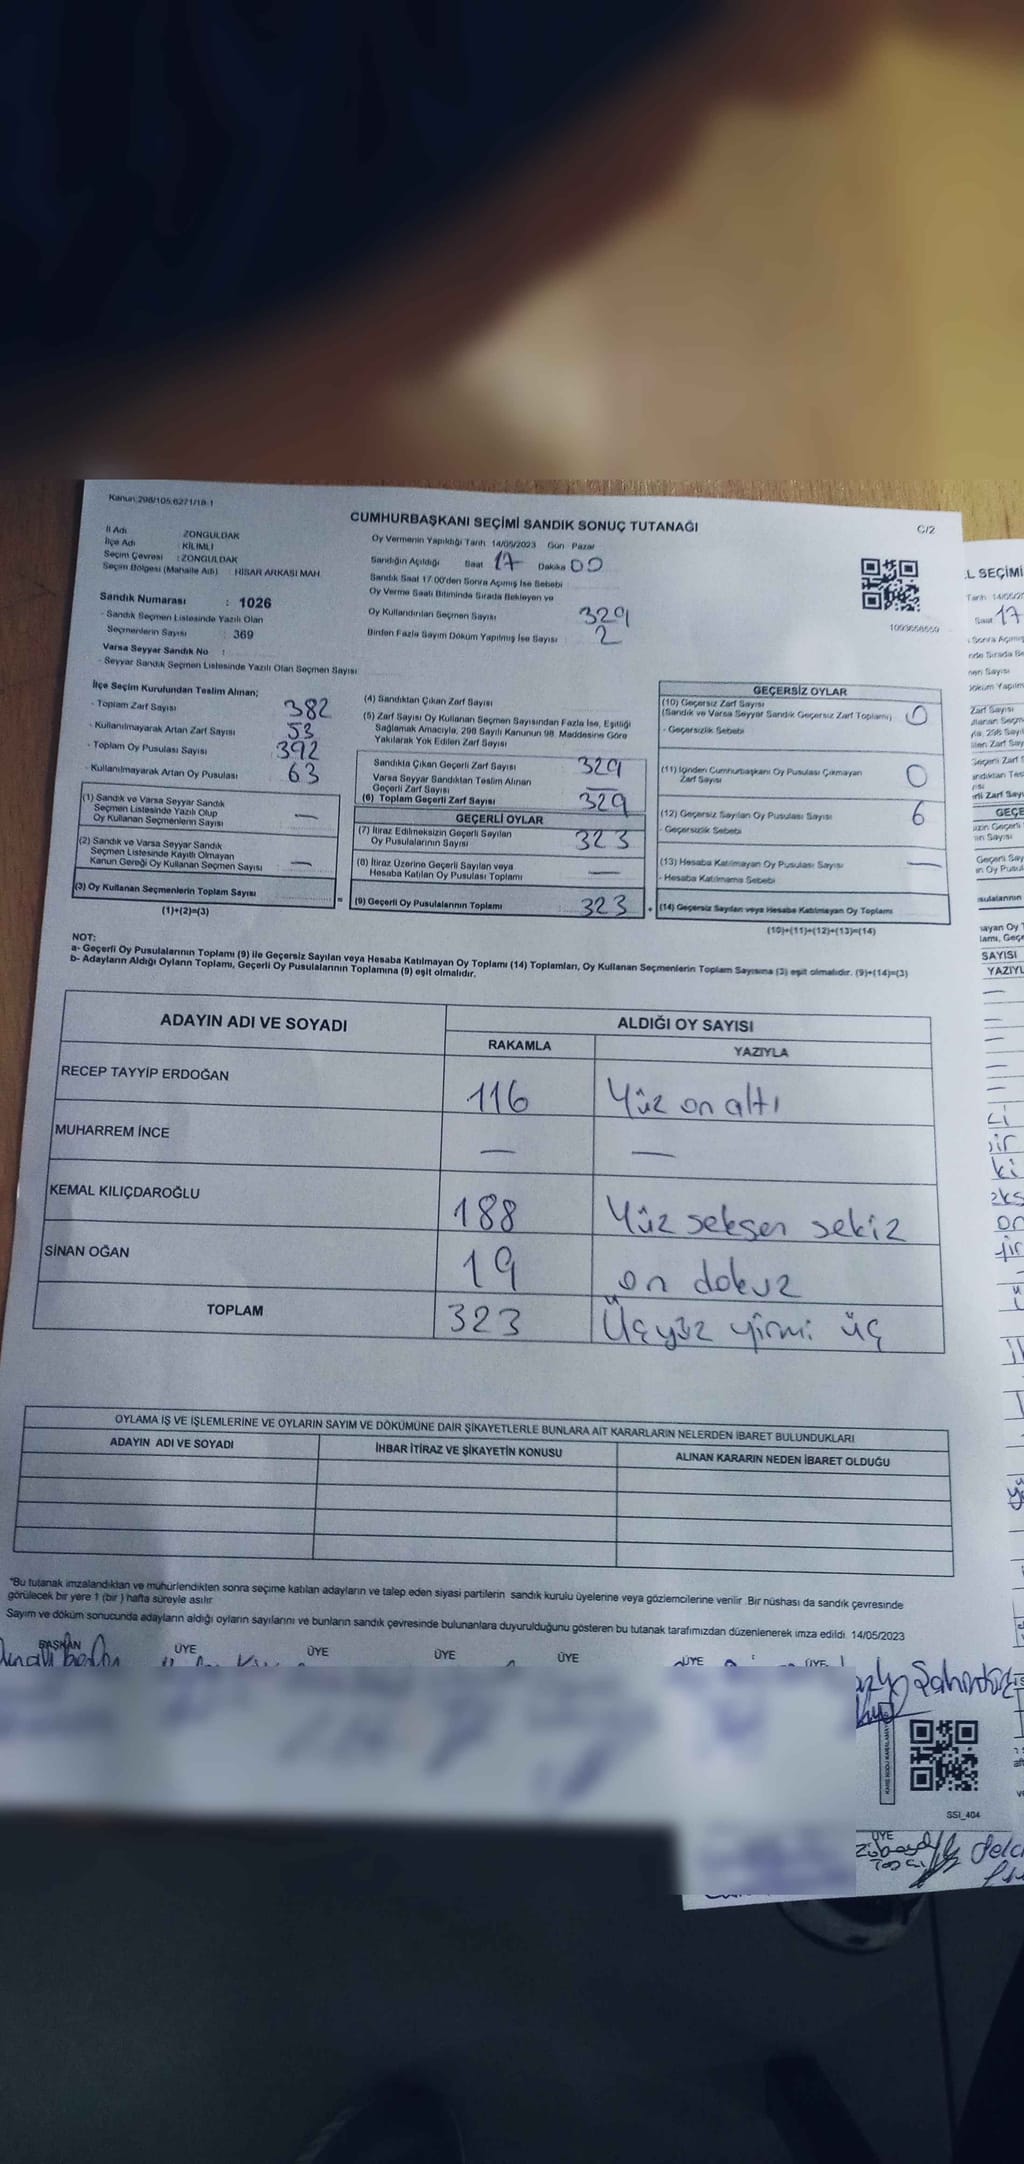 Kanun:298/105,6271/18-1
CUMHURBAŞKANI SEÇİMİ SANDIK SONUÇ TUTANAĞI
C/2
İl Adı : ZONGULDAK
İlçe Adı : KİLİMLİ
Seçim Çevresi : ZONGULDAK
Seçim Bölgesi (Mahalle Adı) : HİSAR ARKASI MAH.
Oy Vermenin Yapıldığı Tarih 14/05/2023 Gün Pazar
Sandığın Açıldığı Saat 17 Dakika 00
Sandık Saat 17.00'den Sonra Açımış İse Sebebi
Oy Verme Saati Bitiminde Sırada Bekleyen ve
Oy Kullandırılan Seçmen Sayısı 329
Birden Fazla Sayım Döküm Yapılmış İse Sayısı 2
Sandık Numarası : 1026
- Sandık Seçmen Listesinde Yazılı Olan
Seçmenlerin Sayısı : 369
Varsa Seyyar Sandık No :
- Seyyar Sandık Seçmen Listesinde Yazılı Olan Seçmen Sayısı
İlçe Seçim Kurulundan Teslim Alınan;
- Toplam Zarf Sayısı 382
- Kullanılmayarak Artan Zarf Sayısı 53
- Toplam Oy Pusulası Sayısı 392
- Kullanılmayarak Artan Oy Pusulası 63
(1) Sandık ve Varsa Seyyar Sandık
Seçmen Listesinde Yazılı Olup
Oy Kullanan Seçmenlerin Sayısı —
(2) Sandık ve Varsa Seyyar Sandık
Seçmen Listesinde Kayıtlı Olmayan
Kanun Gereği Oy Kullanan Seçmen Sayısı —
(3) Oy Kullanan Seçmenlerin Toplam Sayısı
(1)+(2)=(3)
(4) Sandıktan Çıkan Zarf Sayısı
(5) Zarf Sayısı Oy Kullanan Seçmen Sayısından Fazla İse, Eşitliği
Sağlamak Amacıyla, 298 Sayılı Kanunun 98. Maddesine Göre
Yakılarak Yok Edilen Zarf Sayısı
Sandıkta Çıkan Geçerli Zarf Sayısı 329
Varsa Seyyar Sandıktan Teslim Alınan
Geçerli Zarf Sayısı —
(6) Toplam Geçerli Zarf Sayısı 329
GEÇERLİ OYLAR
(7) İtiraz Edilmeksizin Geçerli Sayılan
Oy Pusulalarının Sayısı 323
(8) İtiraz Üzerine Geçerli Sayılan veya
Hesaba Katılan Oy Pusulası Toplamı —
(9) Geçerli Oy Pusulalarının Toplamı 323
1093658559
GEÇERSİZ OYLAR
(10) Geçersiz Zarf Sayısı
(Sandık ve Varsa Seyyar Sandık Geçersiz Zarf Toplamı) 0
- Geçersizlik Sebebi
(11) İçinden Cumhurbaşkanı Oy Pusulası Çıkmayan
Zarf Sayısı 0
(12) Geçersiz Sayılan Oy Pusulası Sayısı 6
- Geçersizlik Sebebi
(13) Hesaba Katılmayan Oy Pusulası Sayısı —
- Hesaba Katılmama Sebebi
(14) Geçersiz Sayılan veya Hesaba Katılmayan Oy Toplamı
(10)+(11)+(12)+(13)=(14)
NOT:
a- Geçerli Oy Pusulalarının Toplamı (9) ile Geçersiz Sayılan veya Hesaba Katılmayan Oy Toplamı (14) Toplamları, Oy Kullanan Seçmenlerin Toplam Sayısına (3) eşit olmalıdır. (9)+(14)=(3)
b- Adayların Aldığı Oyların Toplamı, Geçerli Oy Pusulalarının Toplamına (9) eşit olmalıdır.
ADAYIN ADI VE SOYADI
ALDIĞI OY SAYISI
RAKAMLA YAZIYLA
RECEP TAYYİP ERDOĞAN 116 Yüz on altı
MUHARREM İNCE — —
KEMAL KILIÇDAROĞLU 188 Yüz seksen sekiz
SİNAN OĞAN 19 on dokuz
TOPLAM 323 Üçyüz yirmi üç
OYLAMA İŞ VE İŞLEMLERİNE VE OYLARIN SAYIM VE DÖKÜMÜNE DAİR ŞİKAYETLERLE BUNLARA AİT KARARLARIN NELERDEN İBARET BULUNDUKLARI
ADAYIN ADI VE SOYADI İHBAR İTİRAZ VE ŞİKAYETİN KONUSU ALINAN KARARIN NEDEN İBARET OLDUĞU
*Bu tutanak imzalandıktan ve mühürlendikten sonra seçime katılan adayların ve talep eden siyasi partilerin sandık kurulu üyelerine veya gözlemcilerine verilir. Bir nüshası da sandık çevresinde
görülecek bir yere 1 (bir) hafta süreyle asılır.
Sayım ve döküm sonucunda adayların aldığı oyların sayılarını ve bunların sandık çevresinde bulunanlara duyurulduğunu gösteren bu tutanak tarafımızdan düzenlenerek imza edildi. 14/05/2023
BAŞKAN ÜYE ÜYE ÜYE ÜYE ÜYE ÜYE
SSI_404
ÜYE
L SEÇİMİ
Saat 17
SAYISI